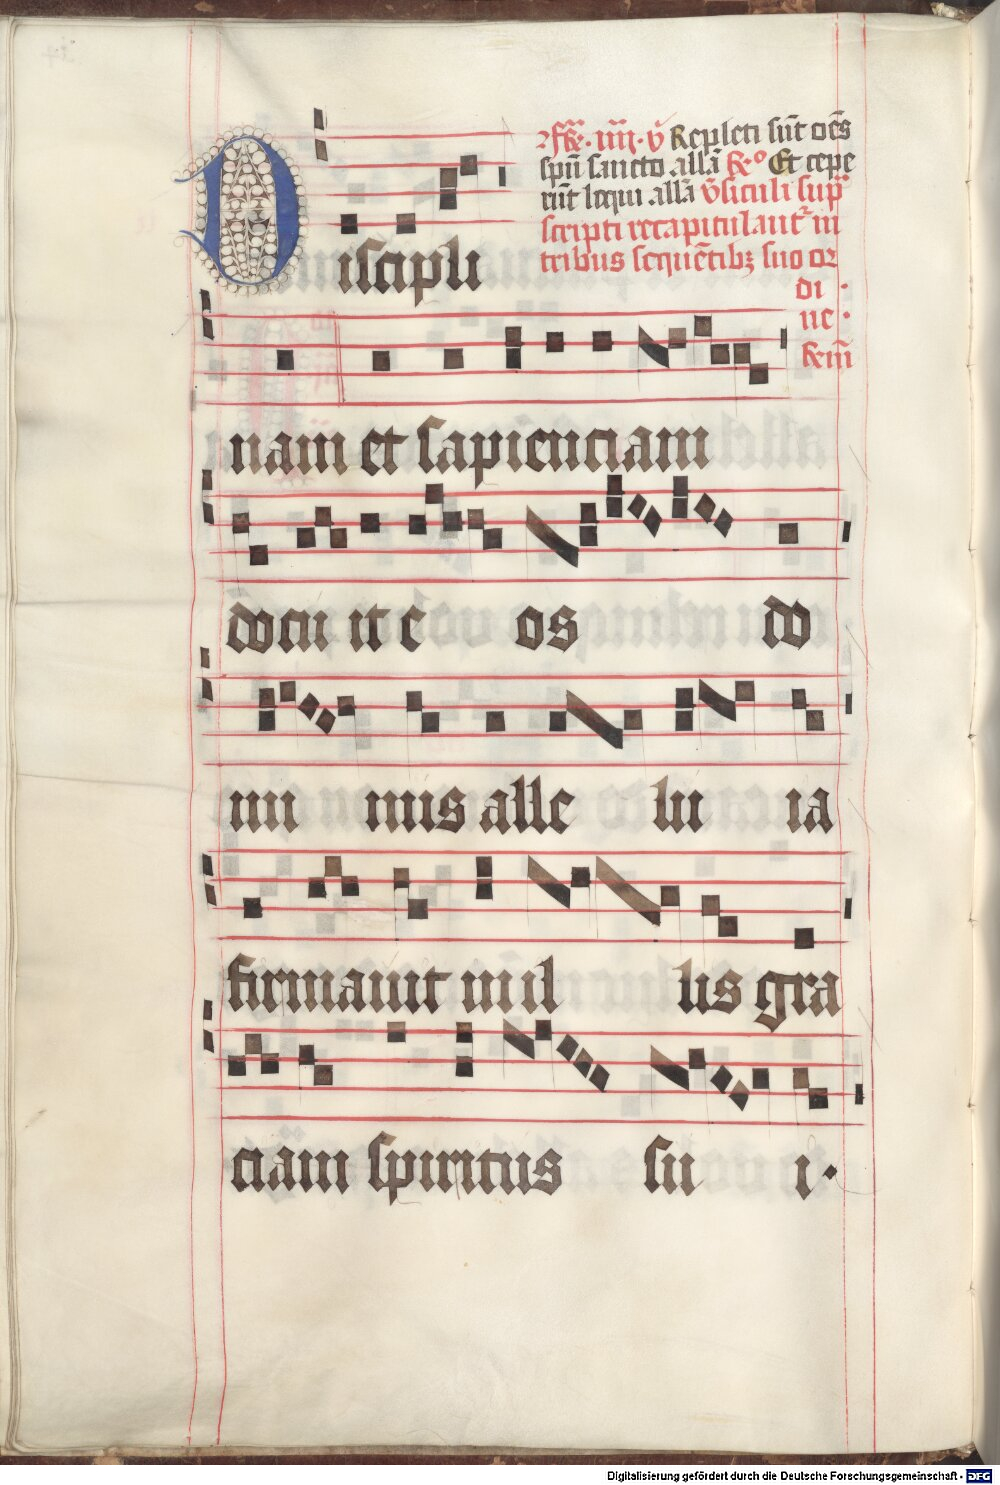 Repleti sūt oēs
spū sancto allā ℟º Et cepe
rūt loqui allā v̄siculi sup
scripti recapitulant᷑ in
tribus sequētibꝫ suo or
di
ne ·
Discipli
nam et sapienciam
docu it e os do
mi nus alle lu ia
firmauit in il lis gra
ciam spiritus su i ·
Digitalisierung gefördert durch die Deutsche Forschungsgemeinschaft - DFG